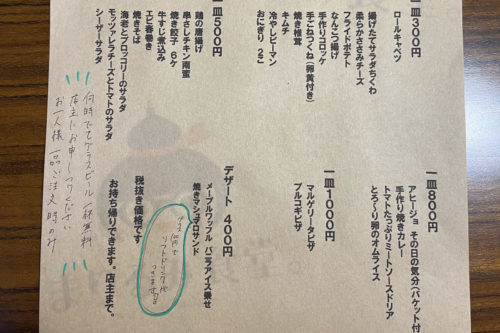 一皿300円
ロールキャベツ
揚げたてサラダちくわ
柔らかささみチーズ
フライドポテト
なんこつ揚げ
手作りコロッケ
手ごねつくね(卵黄付き)
焼き椎茸
キムチ
冷やしピーマン
おにぎり 2コ
一皿500円
鶏の唐揚げ
串さしチキン南蛮
焼き餃子 6ケ
牛すじ煮込み
エビ春巻き
焼きそば
海老とブロッコリーのサラダ
モッツァレラチーズとトマトのサラダ
シーザーサラダ
一皿800円
アヒージョ その日の気分(バケット付
手作り焼きカレー
トマトたっぷりミートソースドリア
とろ〜り卵のオムライス
一皿1000円
マルゲリータピザ
プルコギピザ
デザート 400円
メープルワッフル バニラアイス乗せ
焼きマシュマロサンド
プラス100円で
ソフトドリンクが
つきます
税抜き価格です
お持ち帰りできます。店主まで。
何時でもグラスビール一杯無料
店主にお申しつけください
お一人様一品ご注文時のみ